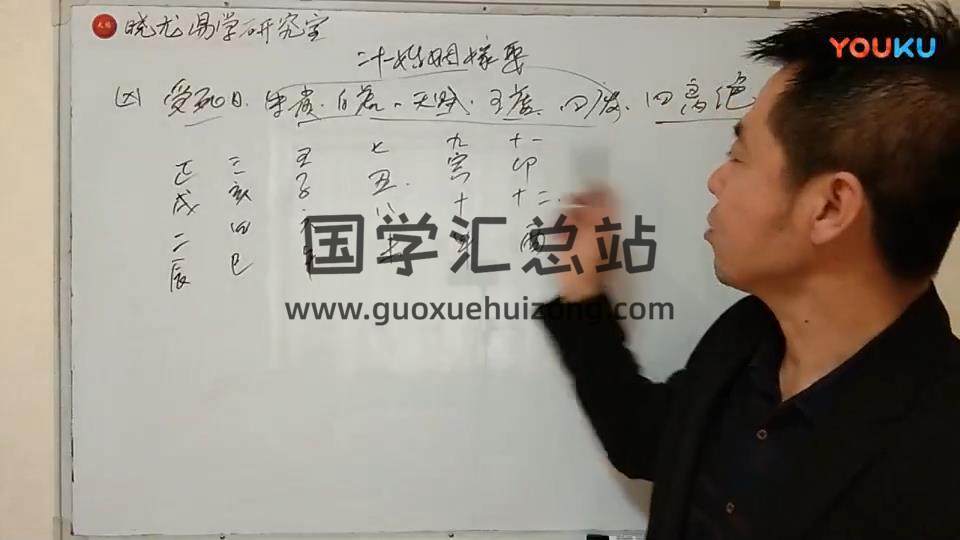 YOUKU
晓龙易学研究室
二十婚姻嫁娶
凶 受死日、朱雀、白虎、天贼、四废、四离绝
正 三 五 七 九 十一
戌 亥 子 丑 寅 卯
二 四 六 八 十 十二
辰 巳 酉
国学汇总站
www.guoxuehuizong.com